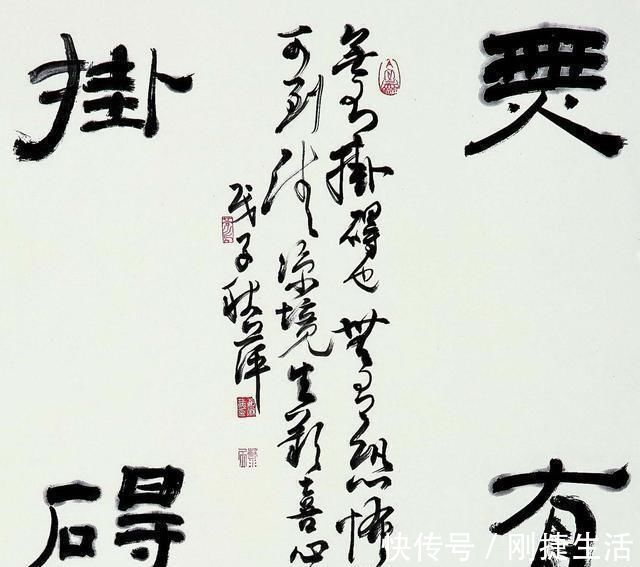 無有
掛碍
無有掛碍也無有恐怖
可到清凉境生歡喜心
戊子秋萍
快传号 / 刚捷生活